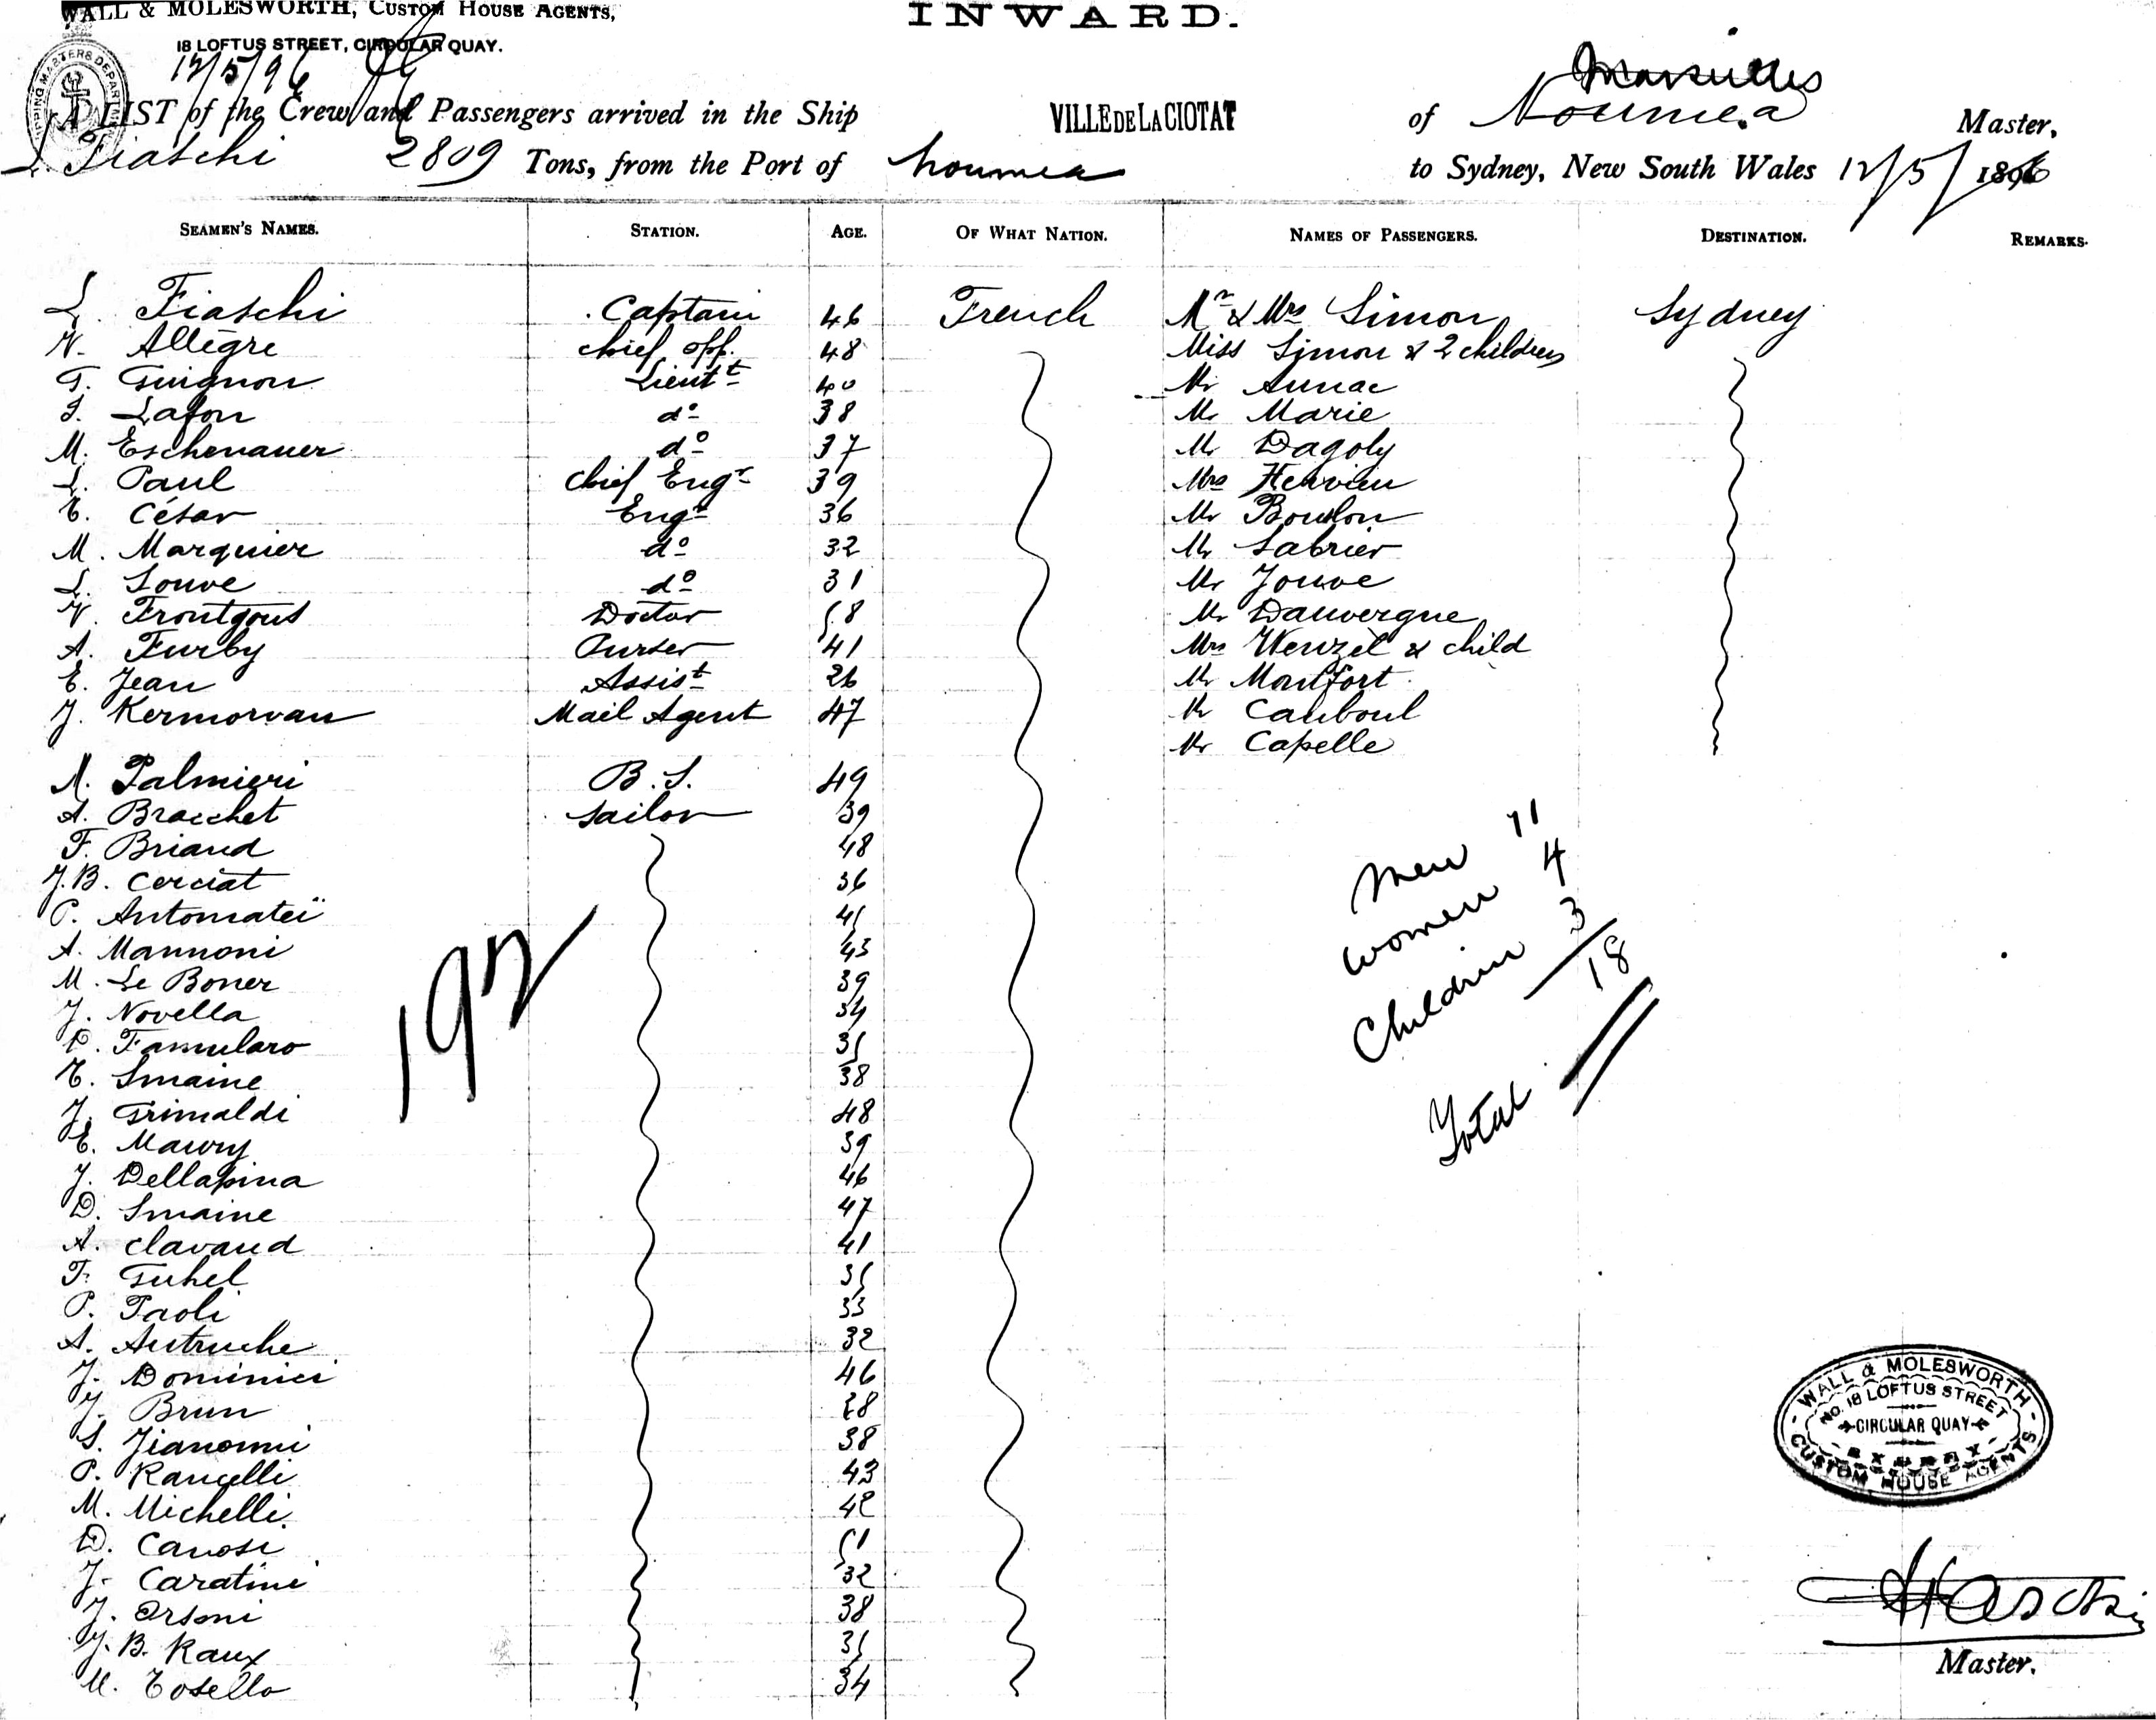 WALL & MOLESWORTH, CUSTOM HOUSE AGENTS,
INWARD.
18 LOFTUS STREET, CIRCULAR QUAY.
12/5/96
Marseilles
A LIST of the Crew and Passengers arrived in the Ship VILLE DE LA CIOTAT of Noumea Master,
L. Fiaschi 2809 Tons, from the Port of Noumea to Sydney, New South Wales 12/5/1896
SEAMEN'S NAMES. STATION. AGE. OF WHAT NATION. NAMES OF PASSENGERS. DESTINATION. REMARKS.
L. Fiaschi Captain 46 French Mr & Mrs Simon Sydney
N. Allègre chief off. 48 Miss Simon & 2 children
T. Guignon Lieutt 40 Mr Aunac
J. Lafon do 38 Mr Marie
M. Eschenauer do 37 Mr Dagoly
L. Paul chief Engr 39 Mrs Hervieu
E. César Engr 36 Mr Boudon
M. Marquier do 32 Mr Sabrier
L. Souve do 31 Mr Jouve
V. Frontgous Doctor 58 Mr Dauvergne
A. Furby Purser 41 Mrs Wenzel & child
E. Jean Assist 26 Mr Montfort
J. Kermorvan Mail Agent 47 Mr Cauboul
Mr Capelle
M. Palmieri B.S. 49
A. Bracchet sailor 39
F. Briand 48
J.B. Cerciat 36
P. Antomateï 45
A. Mannoni 43
M. Le Boner 39
J. Novella 34
D. Famularo 35
E. Smaine 38
J. Grimaldi 48
E. Maury 39
J. Dellapina 46
D. Smaine 47
A. Clavaud 41
F. Guhel 35
P. Paoli 33
A. Autruche 32
J. Dominici 46
J. Brun 28
S. Jianonni 38
P. Rancelli 43
M. Michelli 42
D. Canosi 51
J. Caratini 32
J. Orsoni 38
J.B. Raux 35
M. Cosello 34
192
Men 11
Women 4
Children 3
Total 18
WALL & MOLESWORTH
No. 18 LOFTUS STREET
CIRCULAR QUAY
SYDNEY
CUSTOM HOUSE AGENTS
LFiaschi
Master.